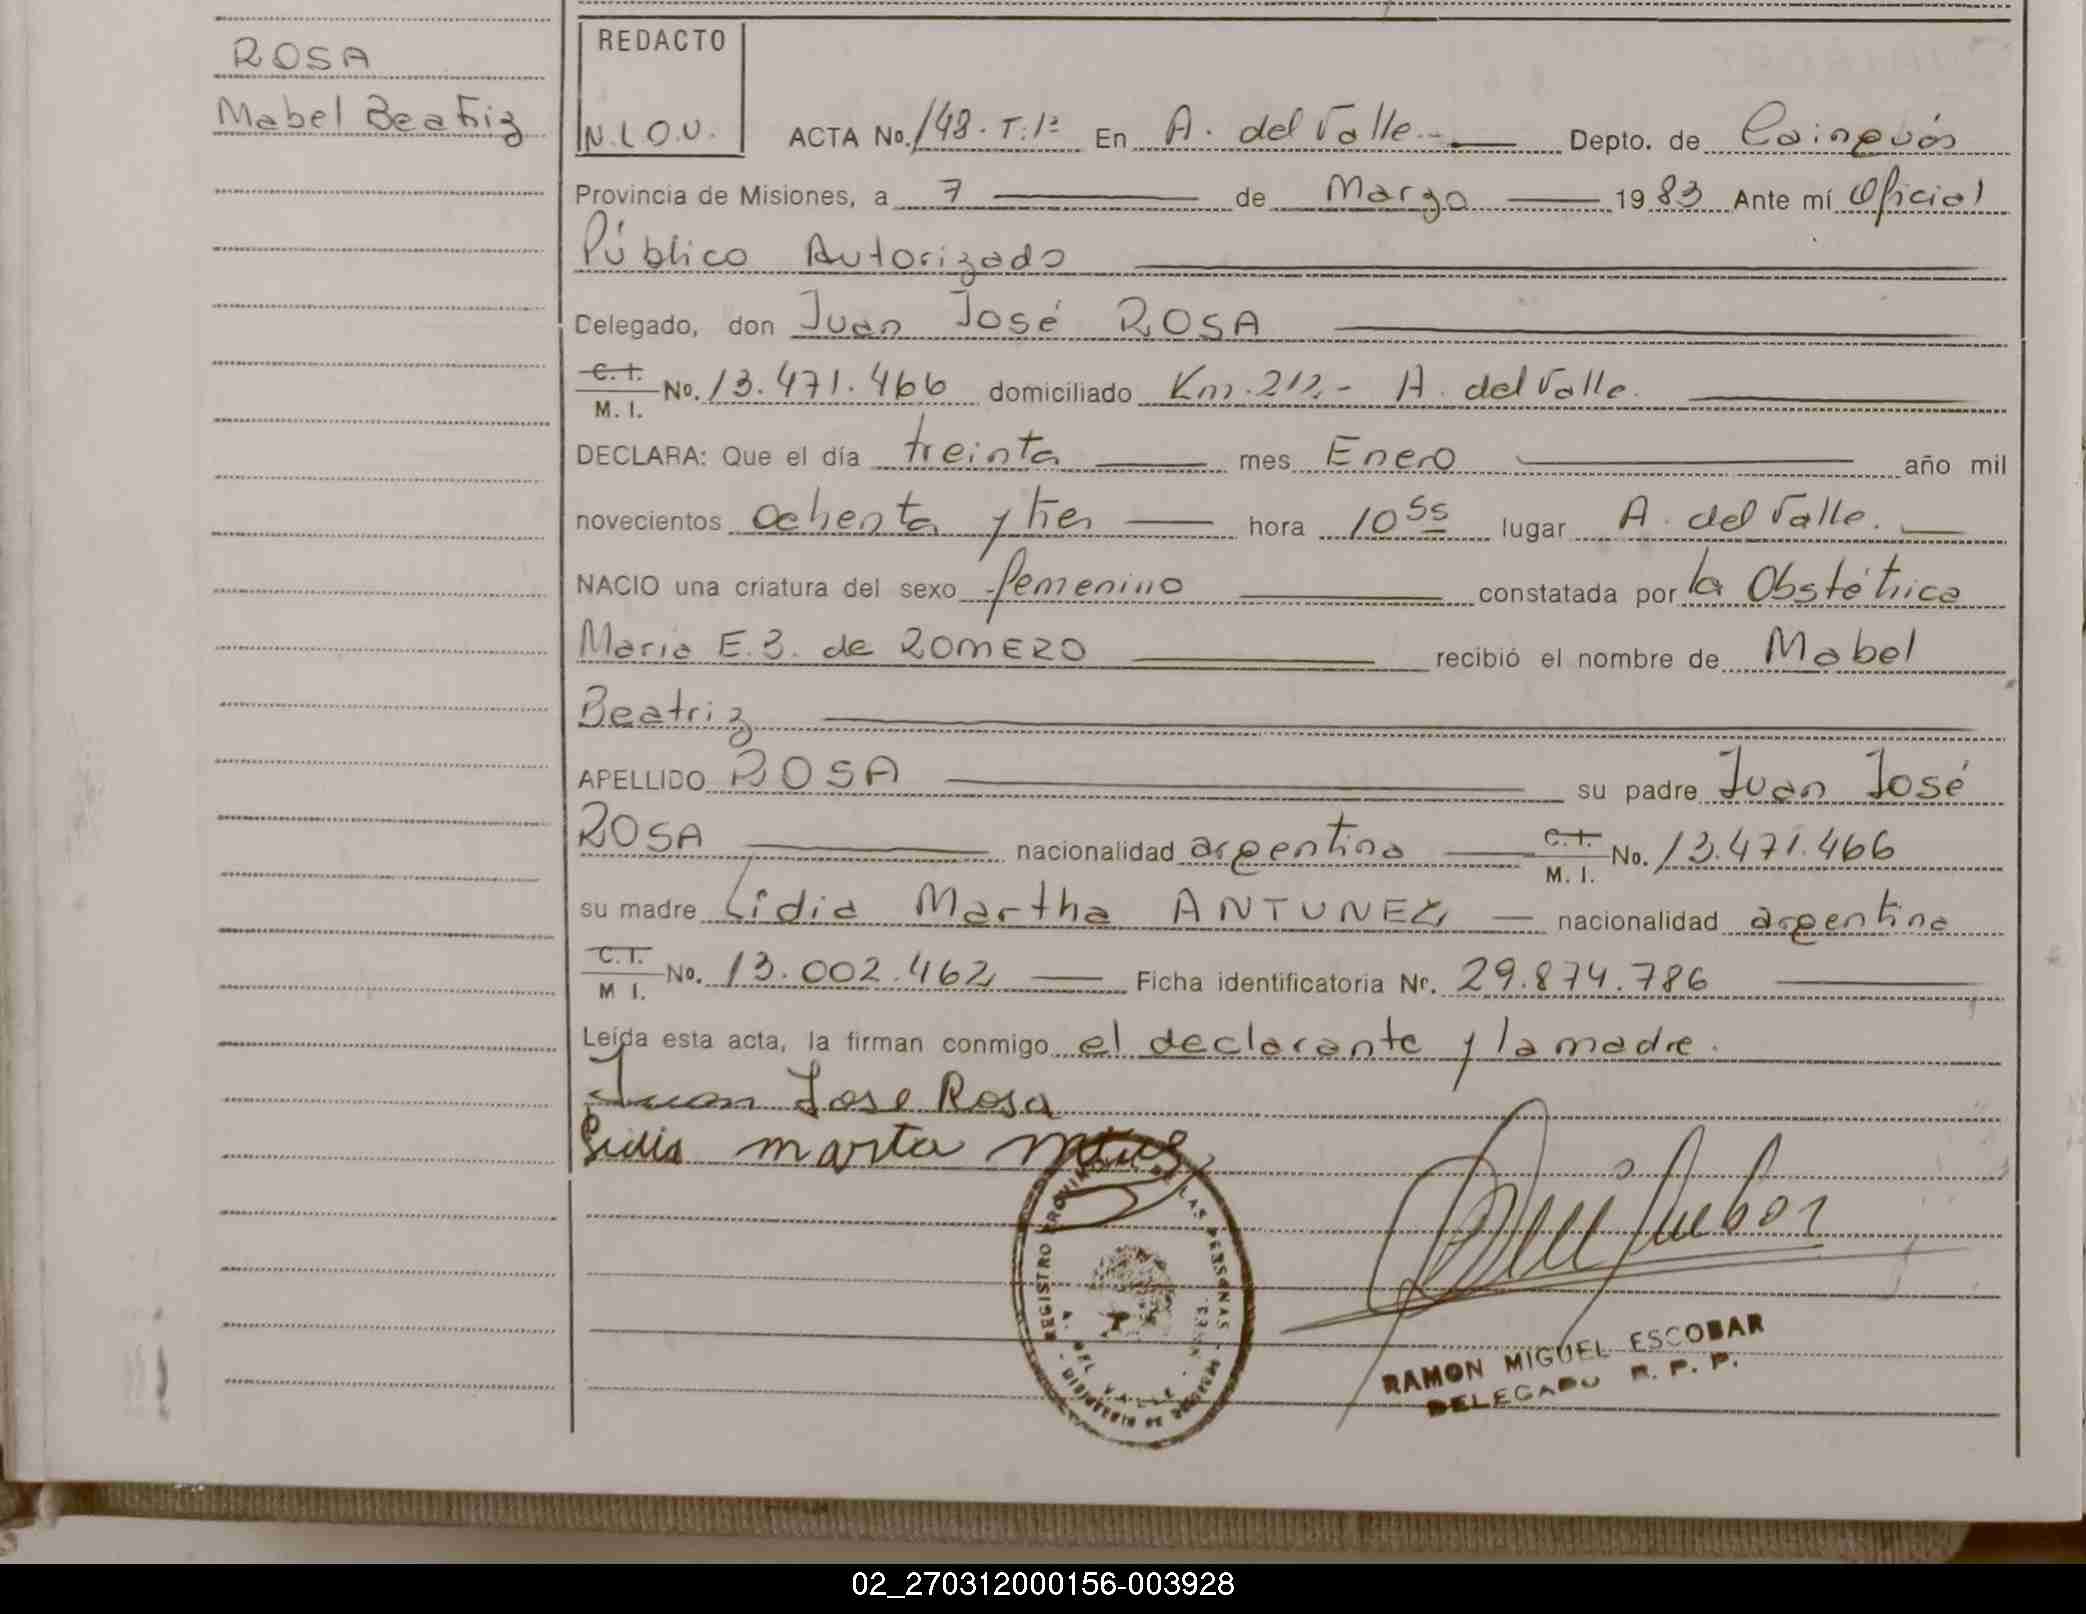 ROSA
Mabel Beatriz
REDACTO
N.L.O.U.
ACTA No. 148. T:1º En A. del Valle. Depto. de Cainguás
Provincia de Misiones, a 7 de Marzo 1983 Ante mí Oficial
Público Autorizado
Delegado, don Juan José ROSA
C. I. M. I. No. 13.471.466 domiciliado Km. 212 - A. del Valle.
DECLARA: Que el día treinta mes Enero año mil
novecientos ochenta y tres hora 10 55 lugar A. del Valle.
NACIO una criatura del sexo femenino constatada por la Obstétrica
Maria E. B. de ROMERO recibió el nombre de Mabel
Beatriz
APELLIDO ROSA su padre Juan José
ROSA nacionalidad argentina C. I. M. I. No. 13.471.466
su madre Lidia Martha ANTUNEZ nacionalidad argentina
C. I. M I. No. 13.002.462 Ficha identificatoria Nº. 29.874.786
Leída esta acta, la firman conmigo el declarante y la madre.
Juan Jose Rosa
Lidia marta
REGISTRO PROVINCIAL DE LAS PERSONAS
A. DEL VALLE
RAMON MIGUEL ESCOBAR
DELEGADO R. P. P.
02_270312000156-003928